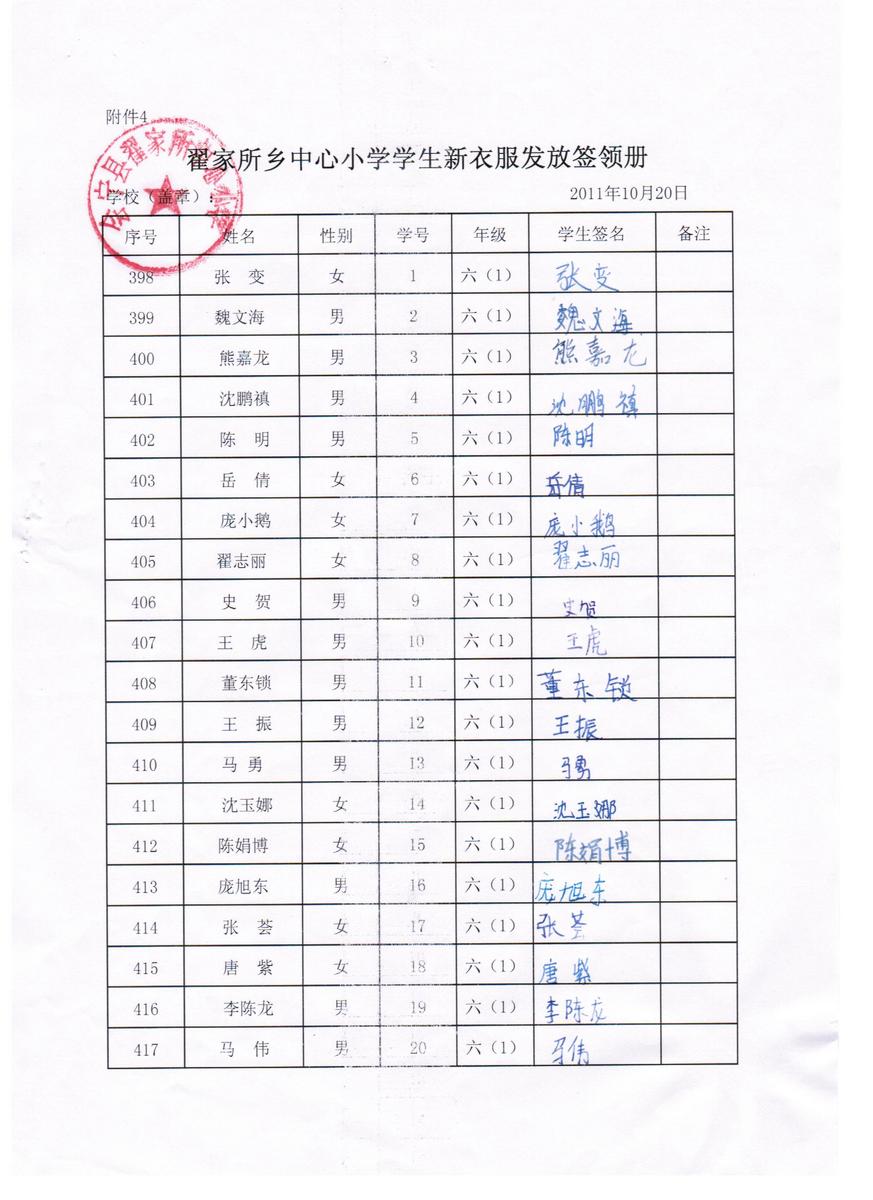 附件4
翟家所乡中心小学学生新衣服发放签领册
学校（盖章）： 2011年10月20日
序号 姓名 性别 学号 年级 学生签名 备注
398 张 变 女 1 六（1） 张变
399 魏文海 男 2 六（1） 魏文海
400 熊嘉龙 男 3 六（1） 熊嘉龙
401 沈鹏禛 男 4 六（1） 沈鹏禛
402 陈 明 男 5 六（1） 陈明
403 岳 倩 女 6 六（1） 岳倩
404 庞小鹅 女 7 六（1） 庞小鹅
405 翟志丽 女 8 六（1） 翟志丽
406 史 贺 男 9 六（1） 史贺
407 王 虎 男 10 六（1） 王虎
408 董东锁 男 11 六（1） 董东锁
409 王 振 男 12 六（1） 王振
410 马 勇 男 13 六（1） 马勇
411 沈玉娜 女 14 六（1） 沈玉娜
412 陈娟博 女 15 六（1） 陈娟博
413 庞旭东 男 16 六（1） 庞旭东
414 张 荟 女 17 六（1） 张荟
415 唐 紫 女 18 六（1） 唐紫
416 李陈龙 男 19 六（1） 李陈龙
417 马 伟 男 20 六（1） 马伟